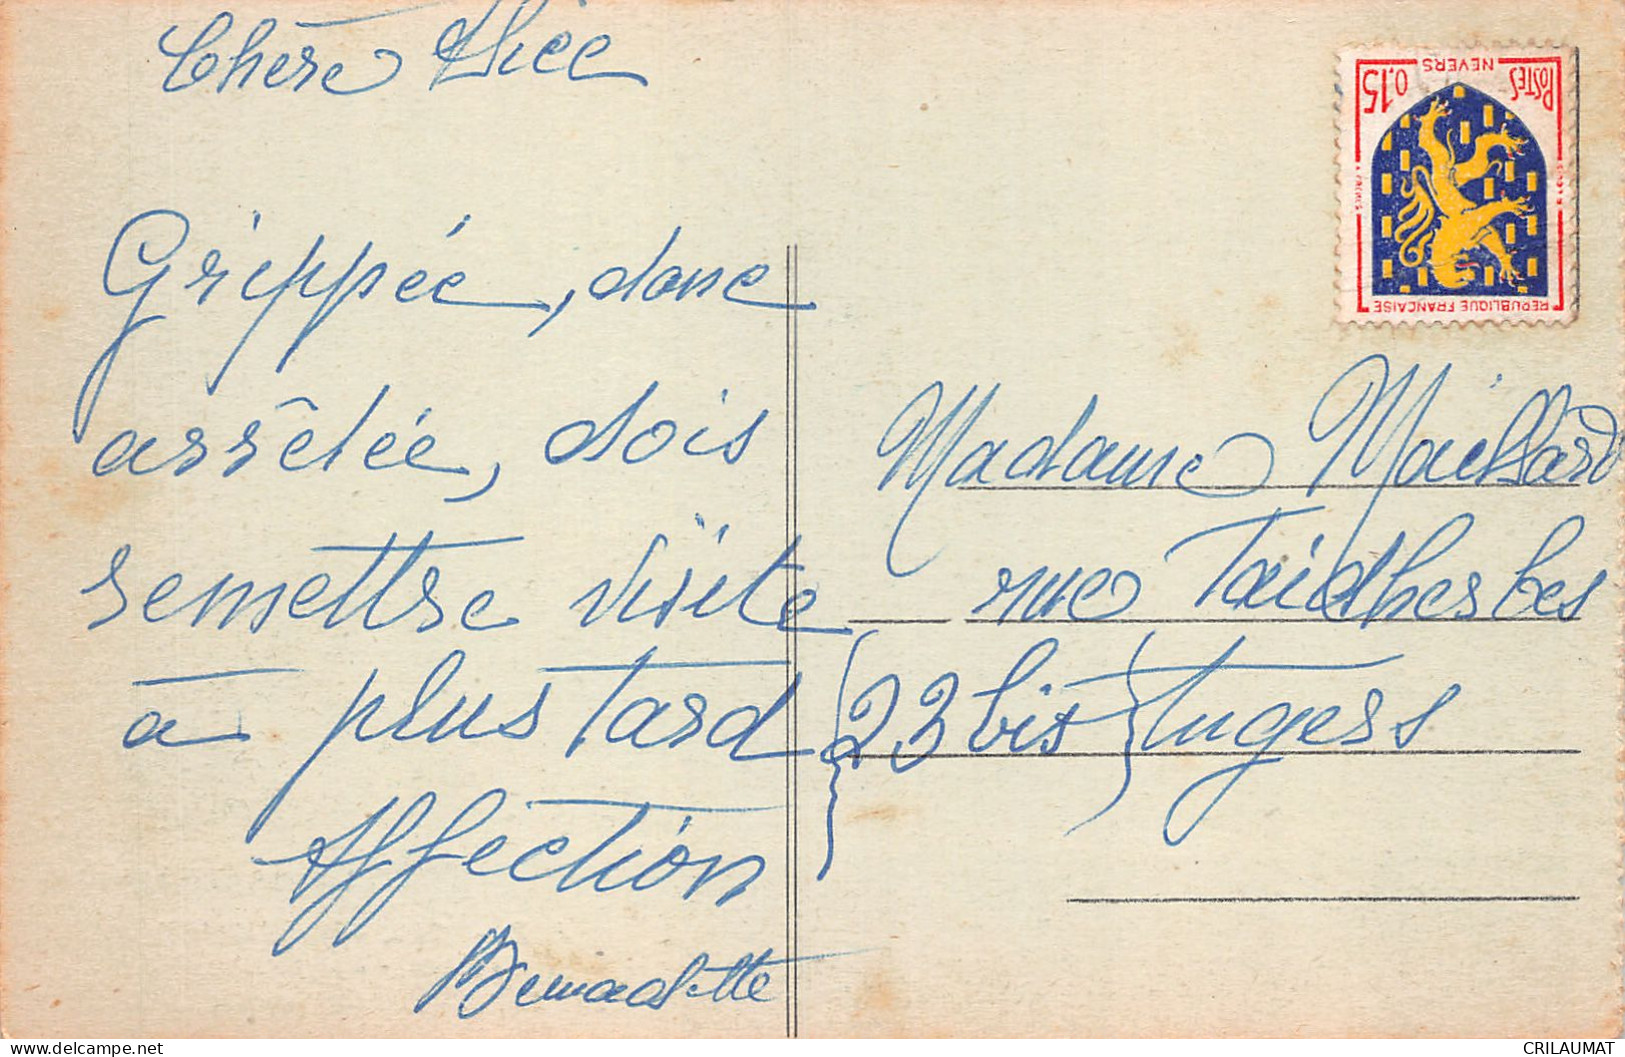 Chère Alice
Grippée, donc
arrêtée, dois
remettre visite
à plus tard
Affection
Bernadette
POSTES
NEVERS
0.15
REPUBLIQUE FRANÇAISE
Madame Maillard
rue Faidherbes
23 bis Angers
CRILAUMAT